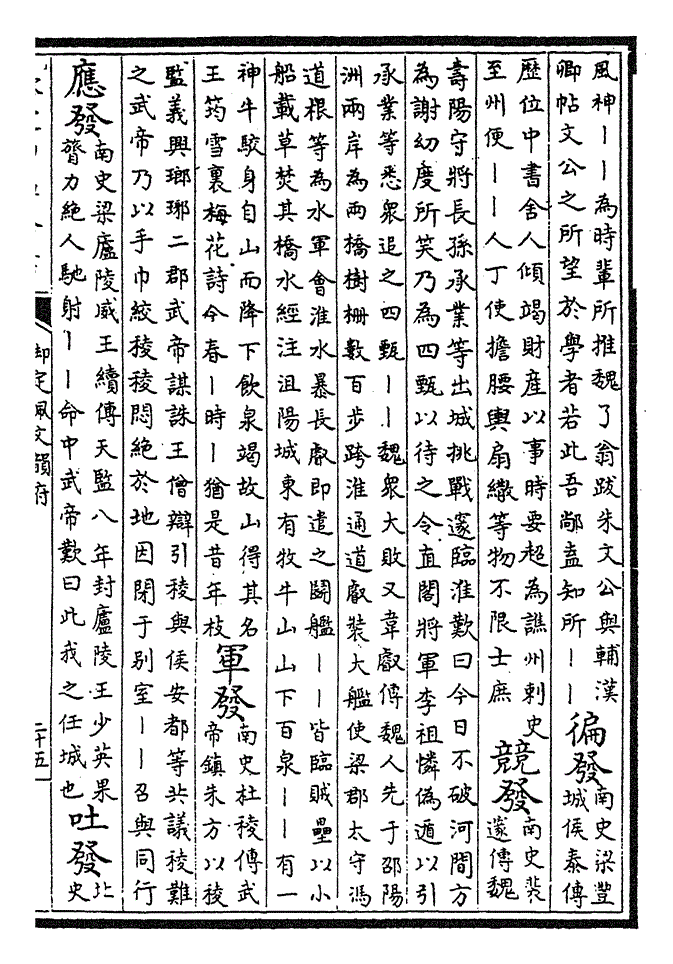 風神丨丨為時輩所推魏了翁跋朱文公與輔漢
卿帖文公之所望於學者若此吾鄙盍知所丨丨
徧發
南史梁豐
城侯泰傳
歴位中書舍人傾竭財産以事時要超為譙州刺史
至州便丨丨人丁使擔腰輿扇繖等物不限士庶
競發
南史裴
邃傳魏
壽陽守將長孫承業等出城挑戰邃臨淮歎曰今日不破河間方
為謝幼度所笑乃為四甄以待之令直閤將軍李祖憐偽遁以引
承業等悉衆追之四甄丨丨魏衆大敗又韋叡傳魏人先于邵陽
洲兩岸為兩橋樹栅數百步跨淮通道叡裝大艦使梁郡太守馮
道根等為水軍會淮水暴長叡即遣之鬬艦丨丨皆臨賊壘以小
船載草焚其橋水經注沮陽城東有牧牛山山下百泉丨丨有一
神牛駮身自山而降下飲泉竭故山得其名
王筠雪裏梅花詩今春丨時丨猶是昔年枝
軍發
南史杜稜傳武
帝鎮朱方以稜
監義興瑯琊二郡武帝謀誅王僧辯引稜與侯安都等共議稜難
之武帝乃以手巾絞稜稜悶絶於地因閉于别室丨丨召與同行
應發
南史梁廬陵威王續傳天監八年封廬陵王少英果
膂力絶人馳射丨丨命中武帝歎曰此我之任城也
吐發
北
史
御定佩文韻府
二十五